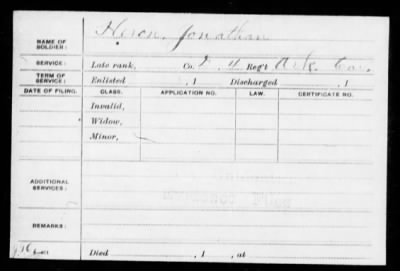 NAME OF SOLDIER: Heron, Jonathan
SERVICE: Late rank, Co. , 4 Reg't Ark. Cav.
TERM OF SERVICE: Enlisted , 1 Discharged , 1
DATE OF FILING. CLASS. APPLICATION NO. LAW. CERTIFICATE NO.
Invalid,
Widow,
Minor,
ADDITIONAL SERVICES:
REMARKS:
Died , 1 , at